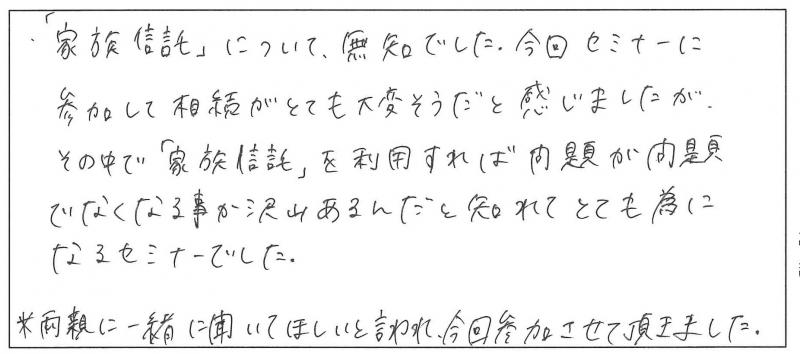 ・「家族信託」について、無知でした。今回セミナーに
参加して相続がとても大変そうだと感じましたが、
その中で「家族信託」を利用すれば問題が問題
でなくなる事が沢山あるんだと知れてとても為に
なるセミナーでした。
※両親に一緒に聞いてほしいと言われ、今回参加させて頂きました。